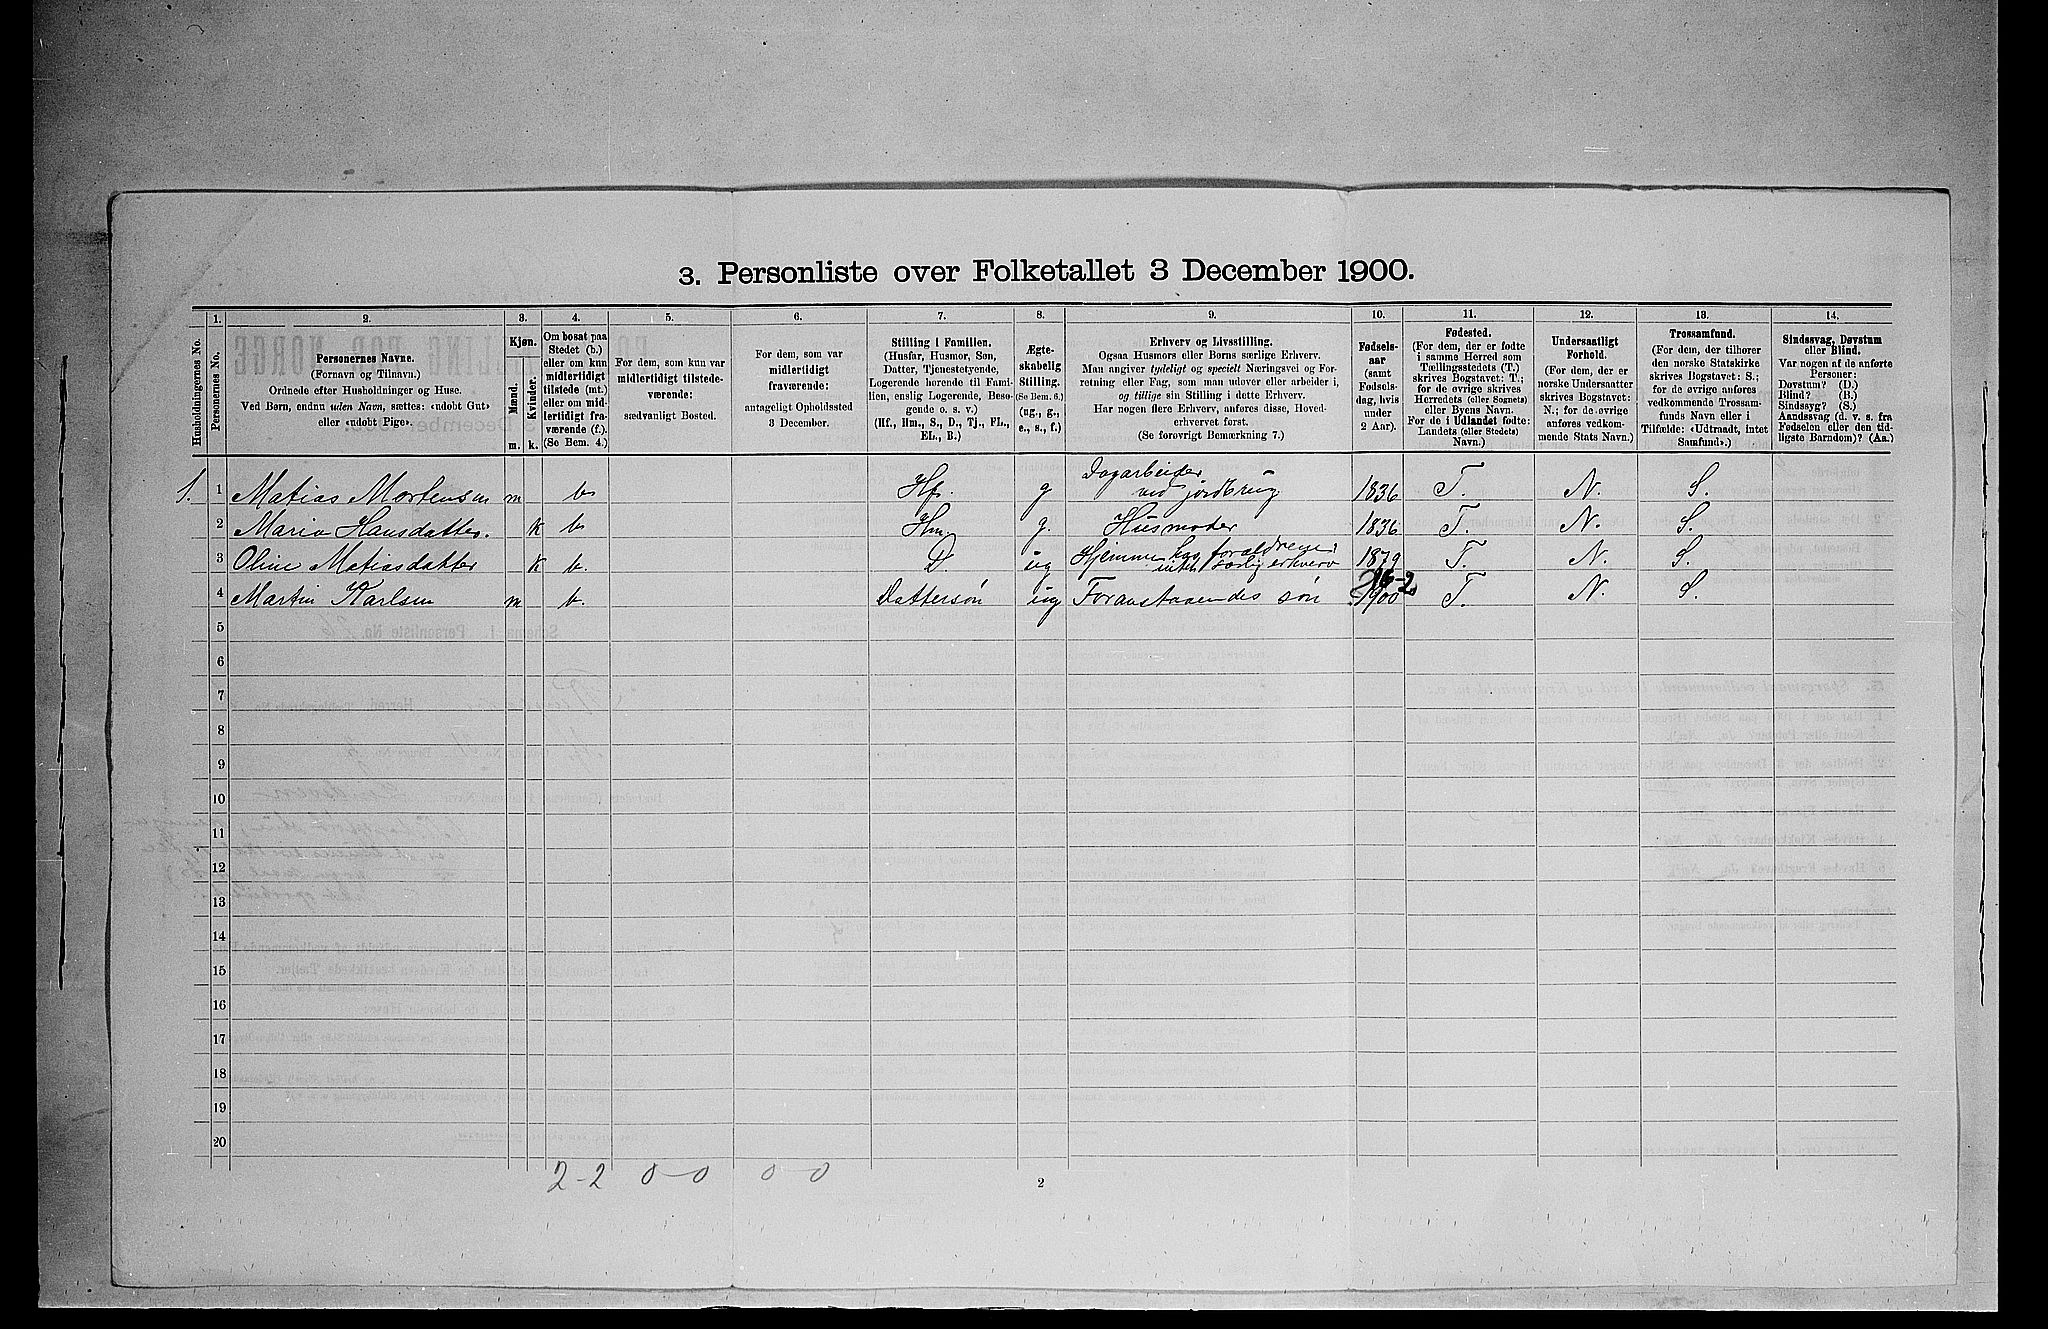 3. Personliste over Folketallet 3 December 1900.
Husholdningernes No.
1.
Personernes No.
2.
Personernes Navne.
(Fornavn og Tilnavn.)
Ordnede efter Husholdninger og Huse.
Ved Børn, endnu uden Navn, sættes: «udøbt Gut»
eller «udøbt Pige».
3.
Kjøn.
Mænd.
Kvinder.
m. k.
4.
Om bosat paa
Stedet (b.)
eller om kun
midlertidigt
tilstede (mt.)
eller om mid-
lertidigt fra-
værende (f.).
(Se Bem. 4.)
5.
For dem, som kun var
midlertidigt tilstede-
værende:
sædvanligt Bosted.
6.
For dem, som var
midlertidigt
fraværende:
antageligt Opholdssted
3 December.
7.
Stilling i Familien.
(Husfar, Husmor, Søn,
Datter, Tjenestetyende,
Logerende hørende til Fami-
lien, enslig Logerende, Besø-
gende o. s. v.)
(Hf., Hm., S., D., Tj., FL.,
EL., B.)
8.
Ægte-
skabelig
Stilling.
(Se Bem. 6.)
(ug., g.,
e., s., f.)
9.
Erhverv og Livsstilling.
Ogsaa Husmors eller Børns særlige Erhverv.
Man angiver tydeligt og specielt Næringsvei og For-
retning eller Fag, som man udøver eller arbeider i,
og tillige sin Stilling i dette Erhverv.
Har nogen flere Erhverv, anføres disse, Hoved-
erhvervet først.
(Se forøvrigt Bemærkning 7.)
10.
Fødsels-
aar
(samt
Fødsels-
dag, hvis
under
2 Aar).
11.
Fødested.
(For dem, der er fødte
i samme Herred som
Tællingsstedets (T.)
skrives Bogstavet: T.;
for de øvrige skrives
Herredets (eller Sognets)
eller Byens Navn.
For de i Udlandet fødte:
Landets (eller Stedets)
Navn.)
12.
Undersaatligt
Forhold.
(For dem, der er
norske Undersaatter
skrives Bogstavet:
N.; for de øvrige
anføres vedkom-
mende Stats Navn.)
13.
Trossamfund.
(For dem, der tilhører
den norske Statskirke
skrives Bogstavet: S.;
for de øvrige anføres
vedkommende Trossam-
funds Navn eller i
Tilfælde: «Udtraadt, intet
Samfund».)
14.
Sindssvag, Døvstum
eller Blind.
Var nogen af de anførte
Personer:
Døvstum? (D.)
Blind? (B.)
Sindssyg? (S.)
Aandssvag (d. v. s. fra
Fødselen eller den tid-
ligste Barndom)? (Aa.)
1. 1 Matias Mortensen m b Hf. g Dagarbeider ved jordbrug 1836 T. N. S.
2 Maria Hansdatter. k b Hm. g. Husmoder 1836 T. N. S.
3 Oline Matiasdatter k b. D. ug Hjemme hos forældrene, intet særlig erhverv 1879 T. N. S.
4 Martin Karlsen m b. Dattersøn ug Foranstaaendes søn 1900 T. N. S.
5
6
7
8
9
10
11
12
13
14
15
16
17
18
19
20
2-2 0-0 0-0
2